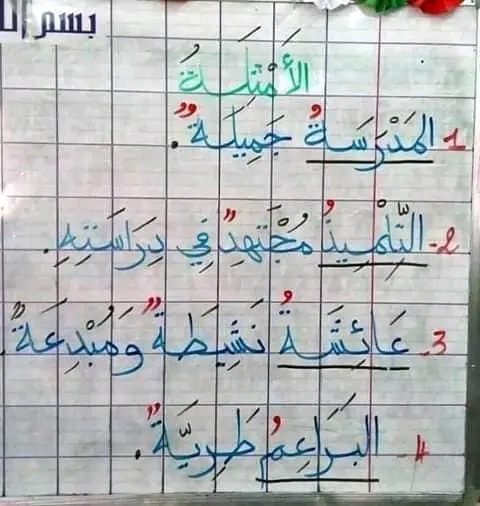 بسم الله
الأَمْثِلَةُ
1 المَدْرَسَةُ جَمِيلَةٌ.
2- التِّلْمِيذُ مُجْتَهِدٌ فِي دِرَاسَتِهِ.
3- عَائِشَةُ نَشِيطَةٌ وَمُبْدِعَةٌ.
4- البَرَاعِمُ طَرِيَّةٌ.